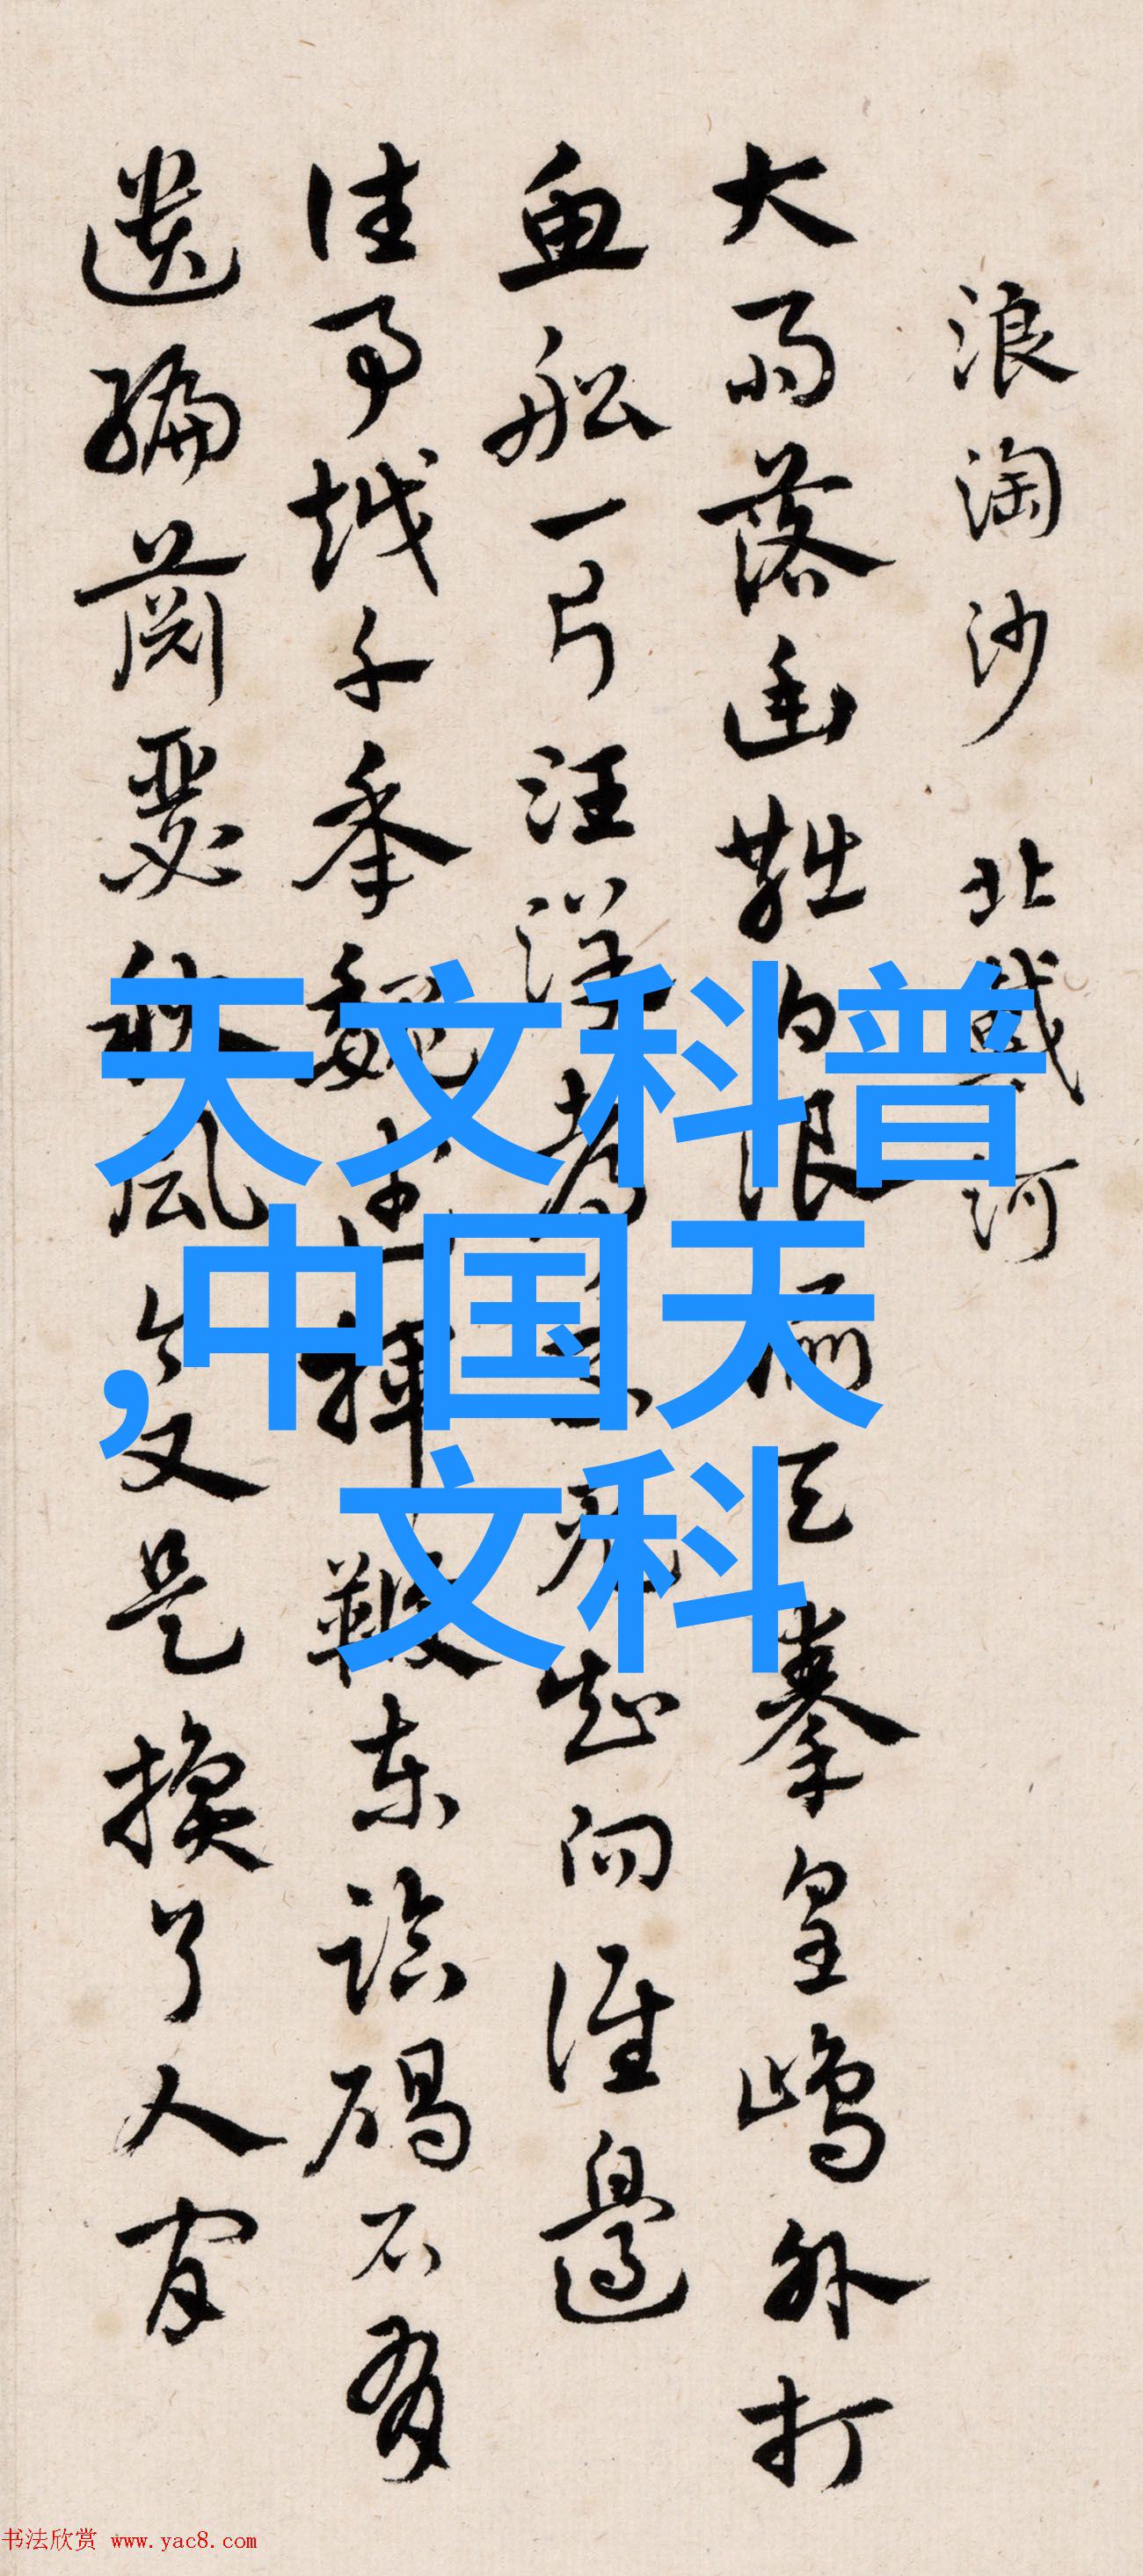 浪淘沙 北戴河
大雨落幽燕白浪滔天秦皇島外打
魚船一片汪洋都不見知向誰邊
往事越千年魏武揮鞭東臨碣石有
遺篇蕭瑟秋風今又是換了人間
天文科普
,中国天
文科
书法欣赏 www.yac8.com